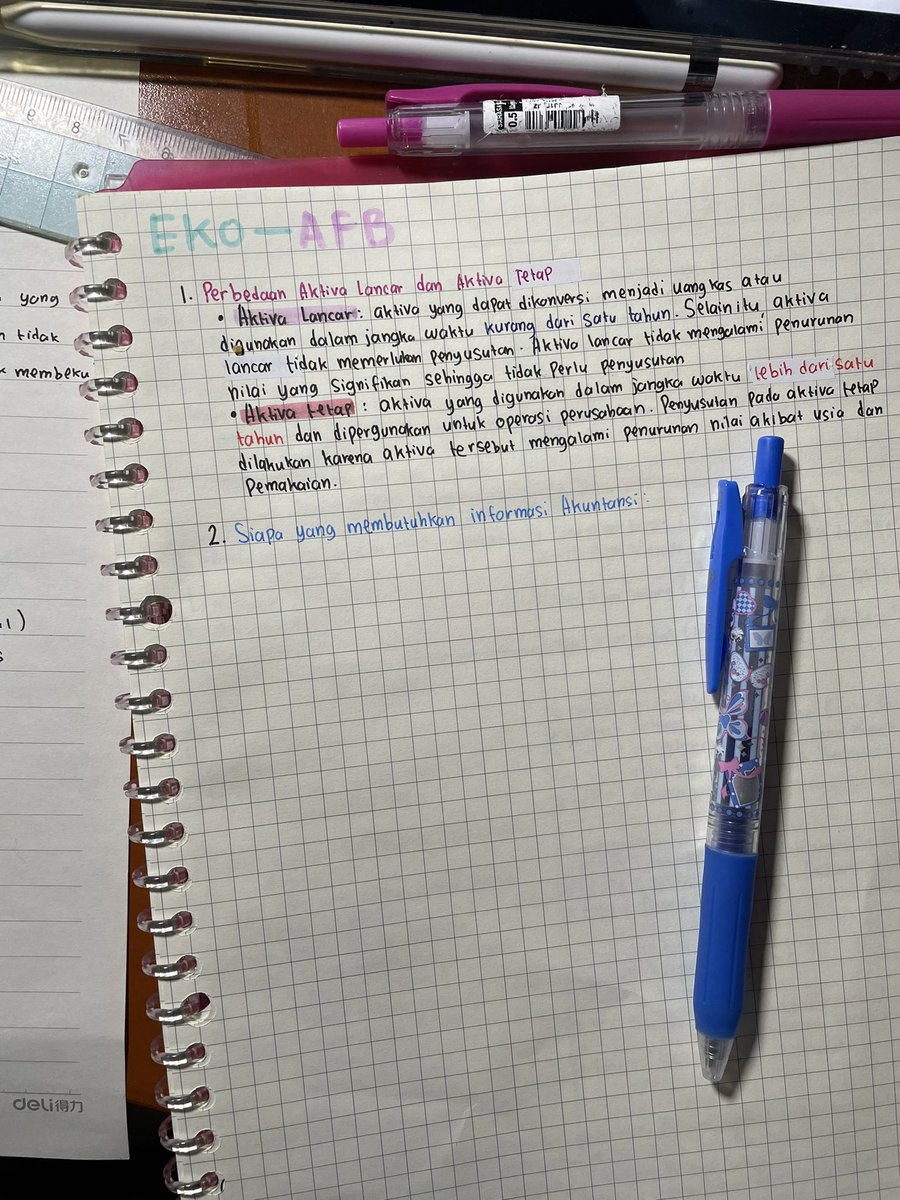 EKO - AFB
1. Perbedaan Aktiva Lancar dan Aktiva Tetap
• Aktiva Lancar : aktiva yang dapat dikonversi menjadi uang kas atau
digunakan dalam jangka waktu kurang dari satu tahun. Selain itu, aktiva
lancar tidak memerlukan penyusutan. Aktiva lancar tidak mengalami penurunan
nilai yang signifikan sehingga tidak perlu penyusutan
• Aktiva tetap : aktiva yang digunakan dalam jangka waktu lebih dari satu
tahun dan dipergunakan untuk operasi perusahaan. Penyusutan pada aktiva tetap
dilakukan karena aktiva tersebut mengalami penurunan nilai akibat usia dan
Pemakaian.
2. Siapa yang membutuhkan informasi Akuntansi :
yang
tidak
membeku
deli得力
0.5
9 8 7 6